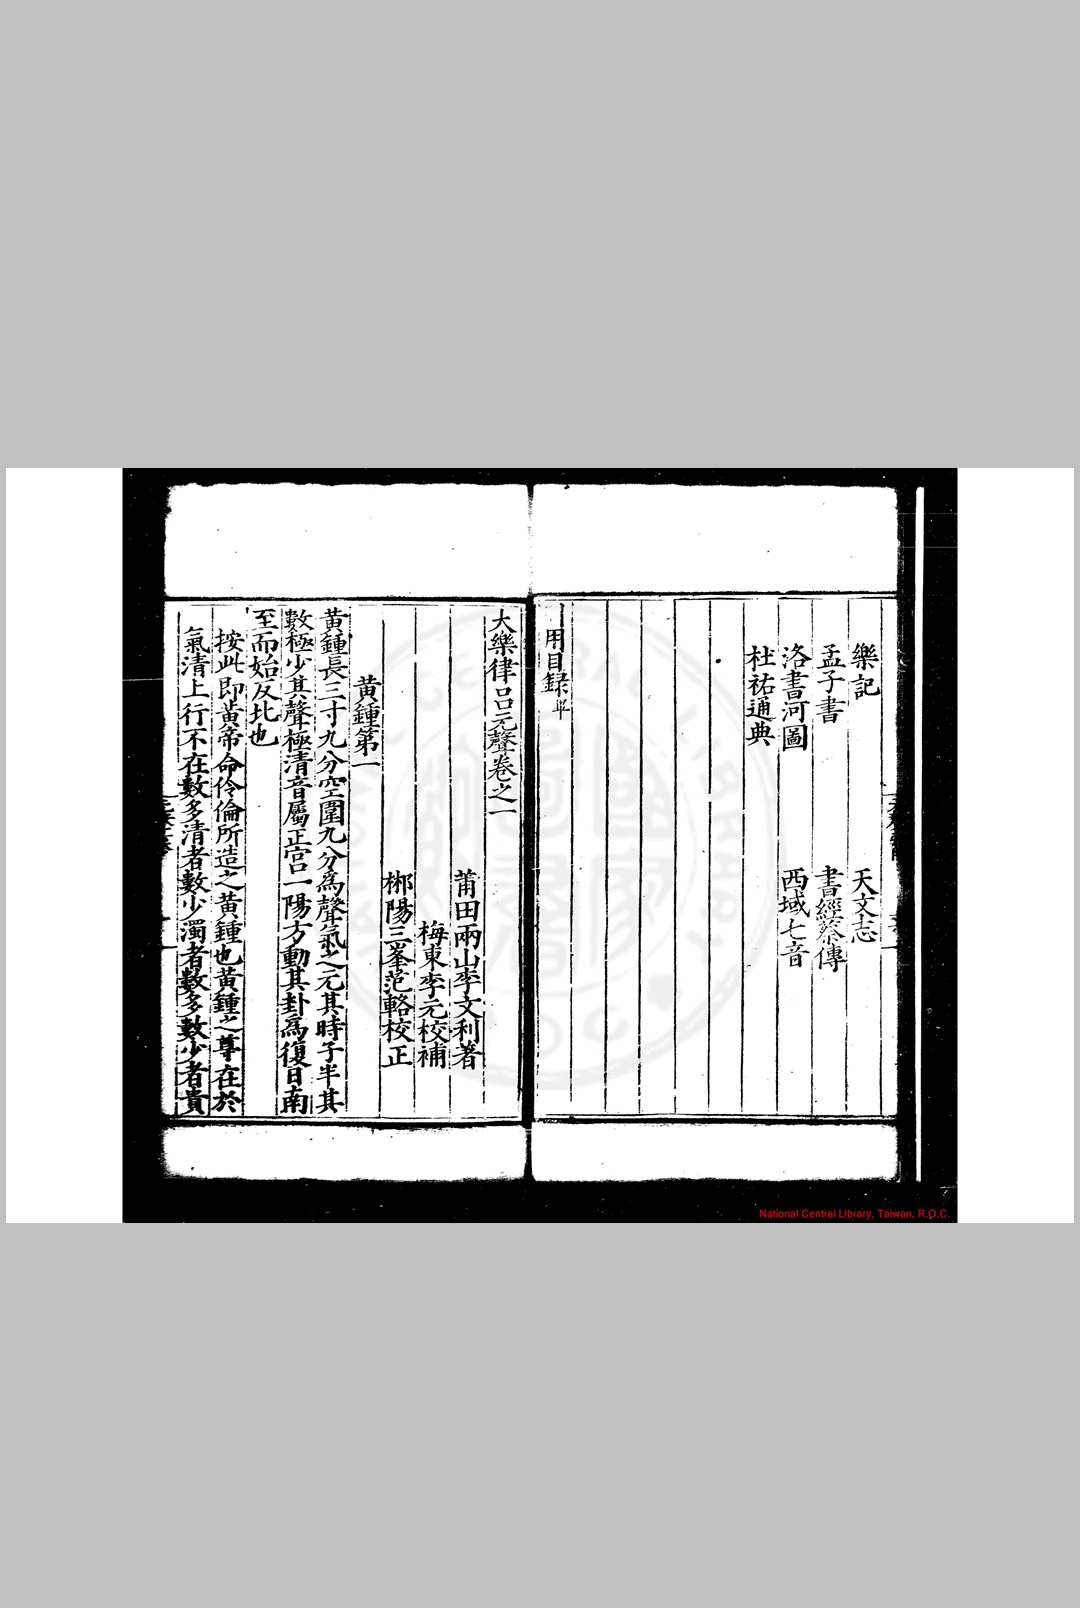 樂記　天文志
孟子書　書經蔡傳
洛書河圖　西域七音
杜祐通典
用目録畢
大樂律呂元聲卷之一
莆田兩山李文利著
梅東李元校補
郴陽三峯范輅校正
黃鍾第一
黃鍾長三寸九分空圍九分為聲氣之元其時子半其
數極少其聲極清音屬正宮一陽方動其卦為復日南
至而始反北也
按此即黃帝命伶倫所造之黃鍾也黃鍾之尊在於
氣清上行不在數多清者數少濁者數多數少者貴
National Central Library, Taiwan, R.O.C.